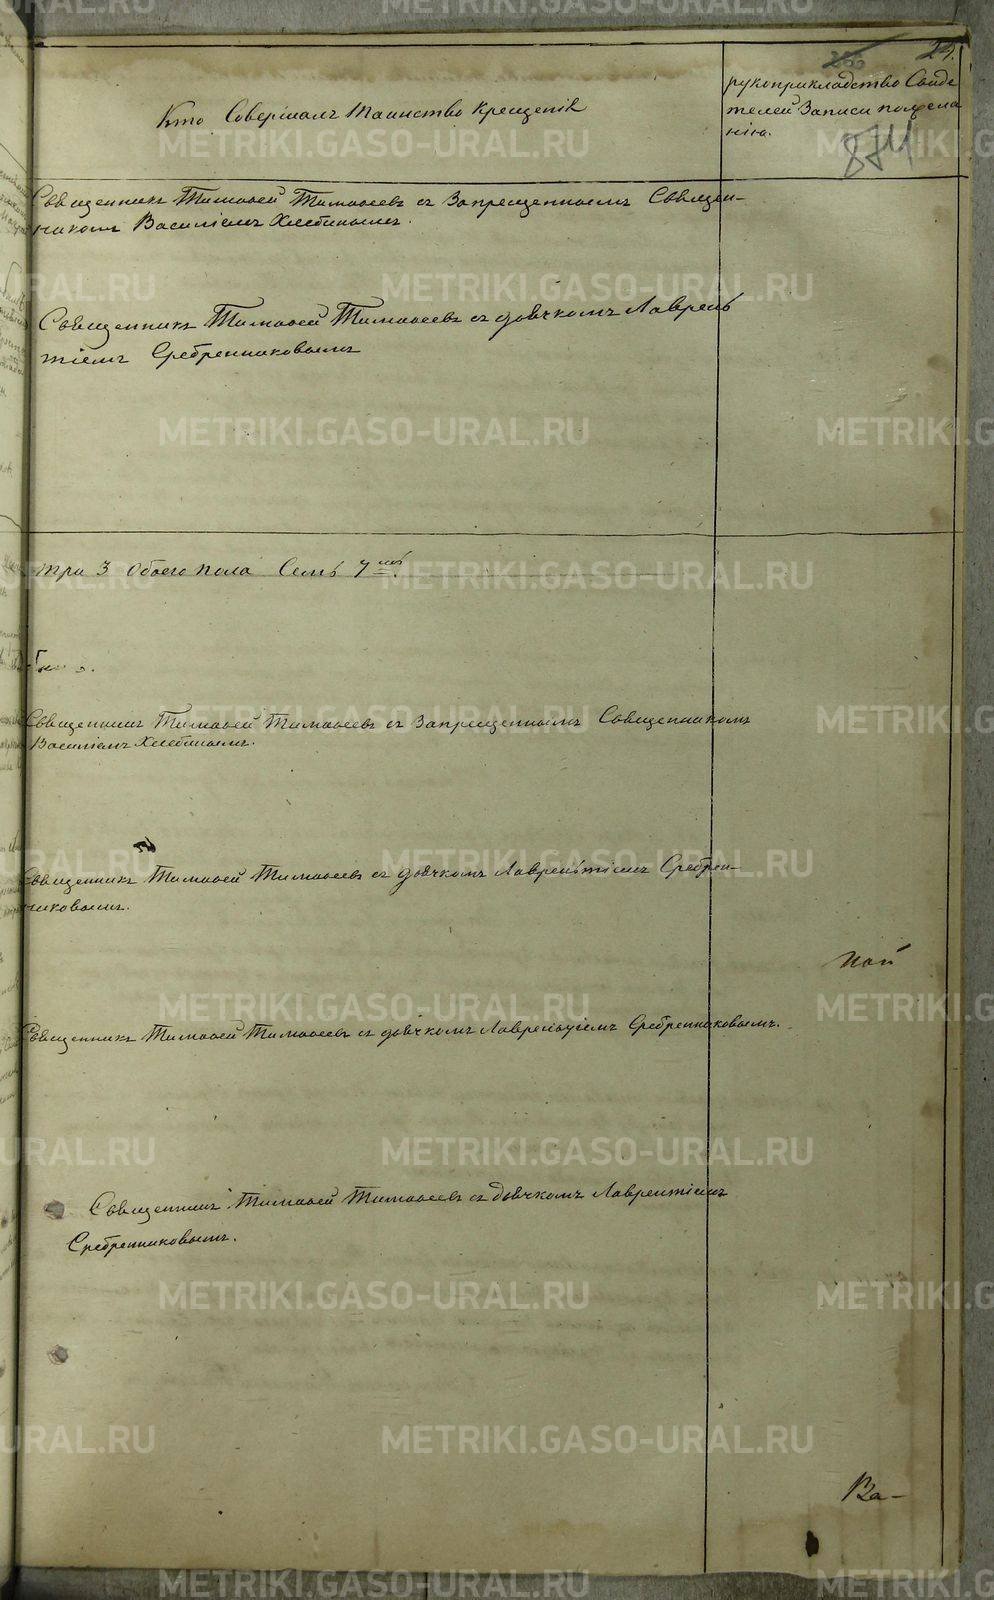 24.
рукоприкладство Свиде
телей Записи пожела
нію.
874
Кто Совершалъ Таинство Крещенія
Священникъ Тимоѳей Тимоѳеевъ съ Запрещеннымъ Священ-
никомъ Василіемъ Хлебинымъ.
Священникъ Тимоѳей Тимоѳеевъ съ дьячкомъ Лаврень
тіемъ Сребренниковымъ
три 3 Обоего пола Семь 7мь.
Священникъ Тимоѳей Тимоѳеевъ съ Запрещеннымъ Священникомъ
Василіемъ Хлебинымъ.
Священникъ Тимоѳей Тимоѳеевъ съ дьячкомъ Лаврентіемъ Сребрен-
никовымъ.
Священникъ Тимоѳей Тимоѳеевъ съ дьячкомъ Лаврентіемъ Сребренниковымъ.
Священникъ Тимоѳей Тимоѳеевъ съ дьячкомъ Лаврентіемъ
Сребренниковымъ.
Ва-
METRIKI.GASO-URAL.RU